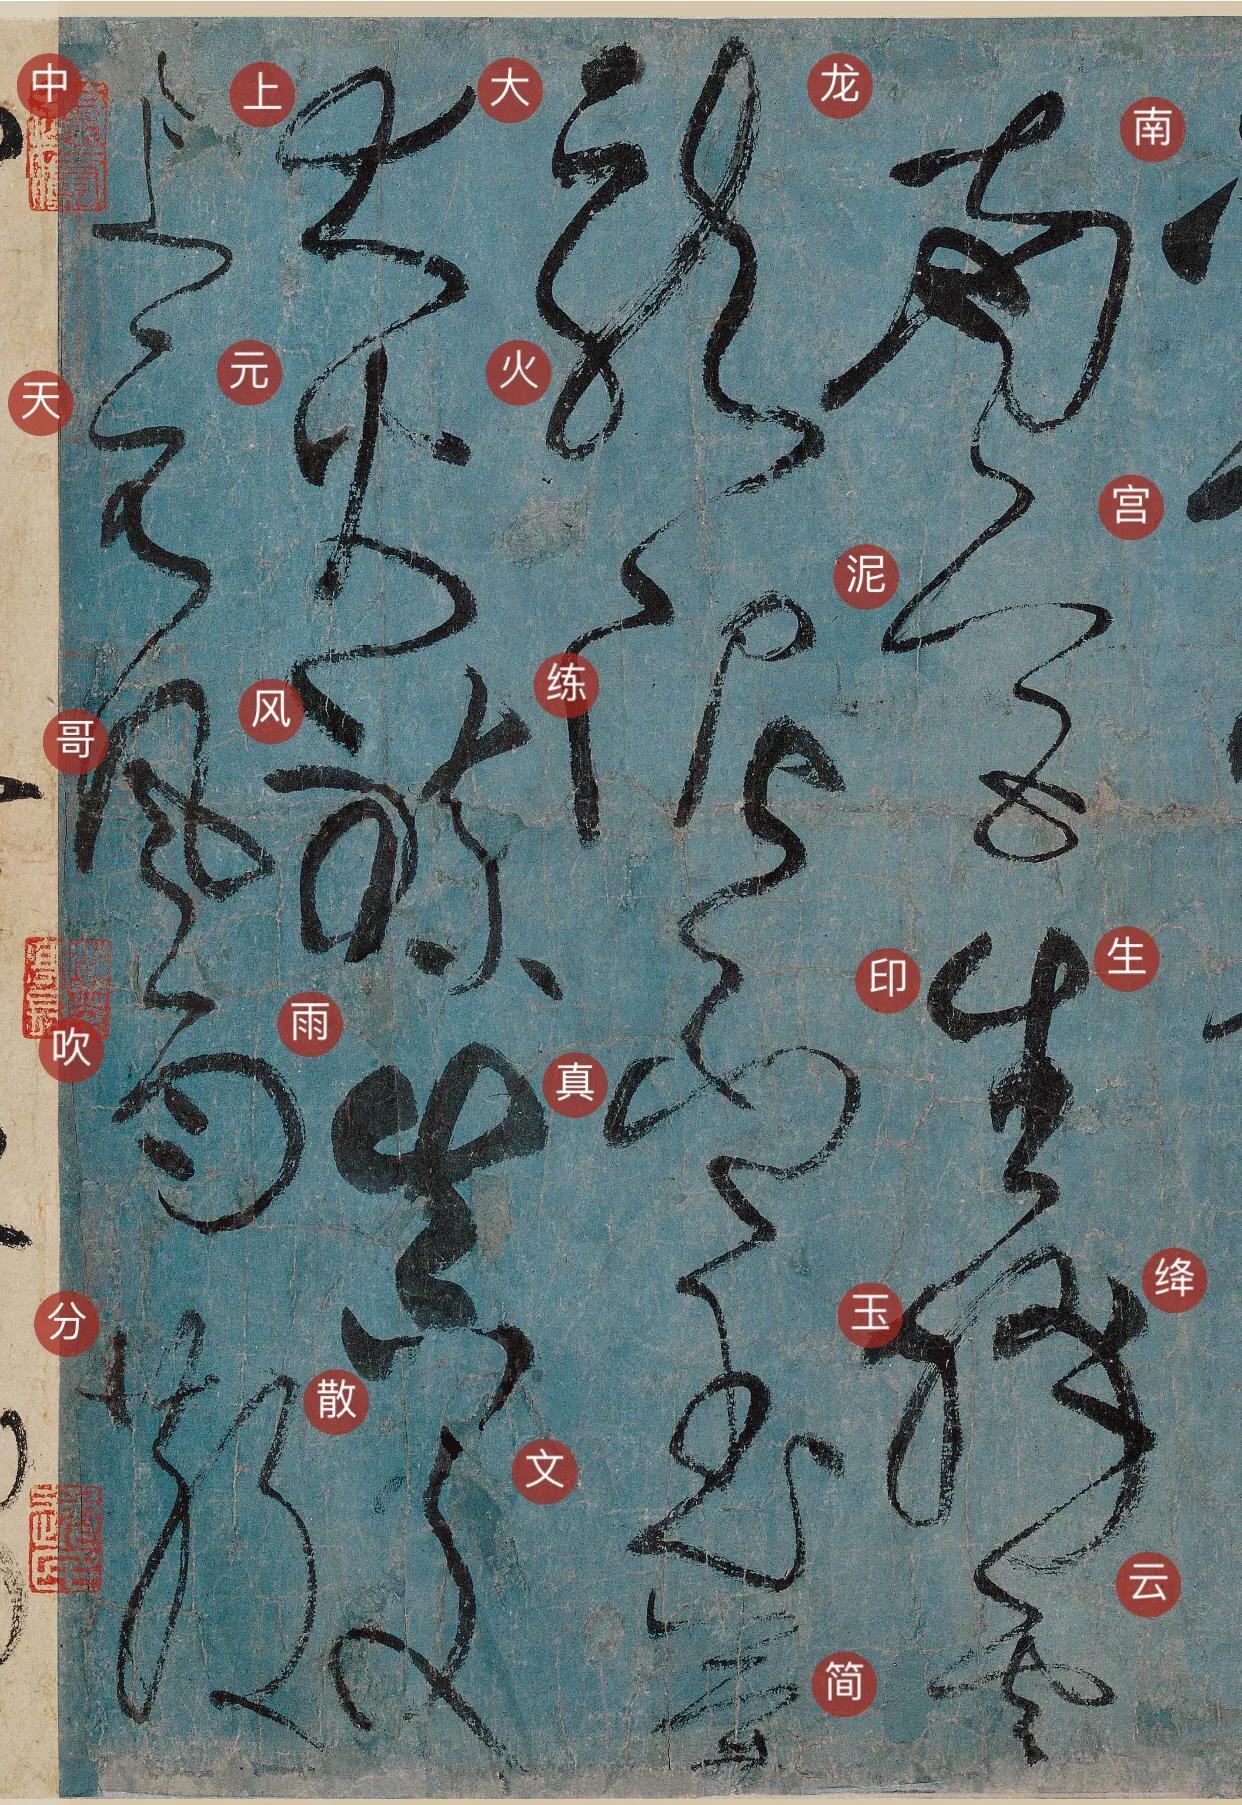 南宫生绛云
龙泥印玉简
大火练真文
上元风雨散
中天哥吹分